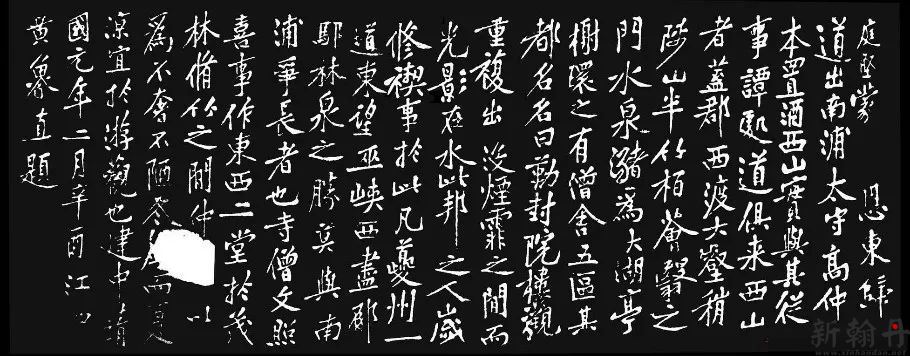 庭堅蒙 恩東歸
道出南浦太守高仲
本置酒西山實與其從
事譚處道俱来西山
者蓋郡西渡大壑稍
陟山半竹柏薈翳之
門水泉瀦為大湖亭
榭環之有僧舍五區其
都名名曰勤封院樓觀
重複出没煙霏之間而
光影在水此邦之人歲
修禊事於此凡夔州一
道東望巫峽西盡郁
鄢林泉之勝莫與南
浦爭長者也寺僧文照
喜事作東西二堂於茂
林脩竹之間仲 以
爲不奢不陋冬 而夏
涼宜於游觀也建中靖
國元年二月辛酉江
黄魯直題
新翰丹